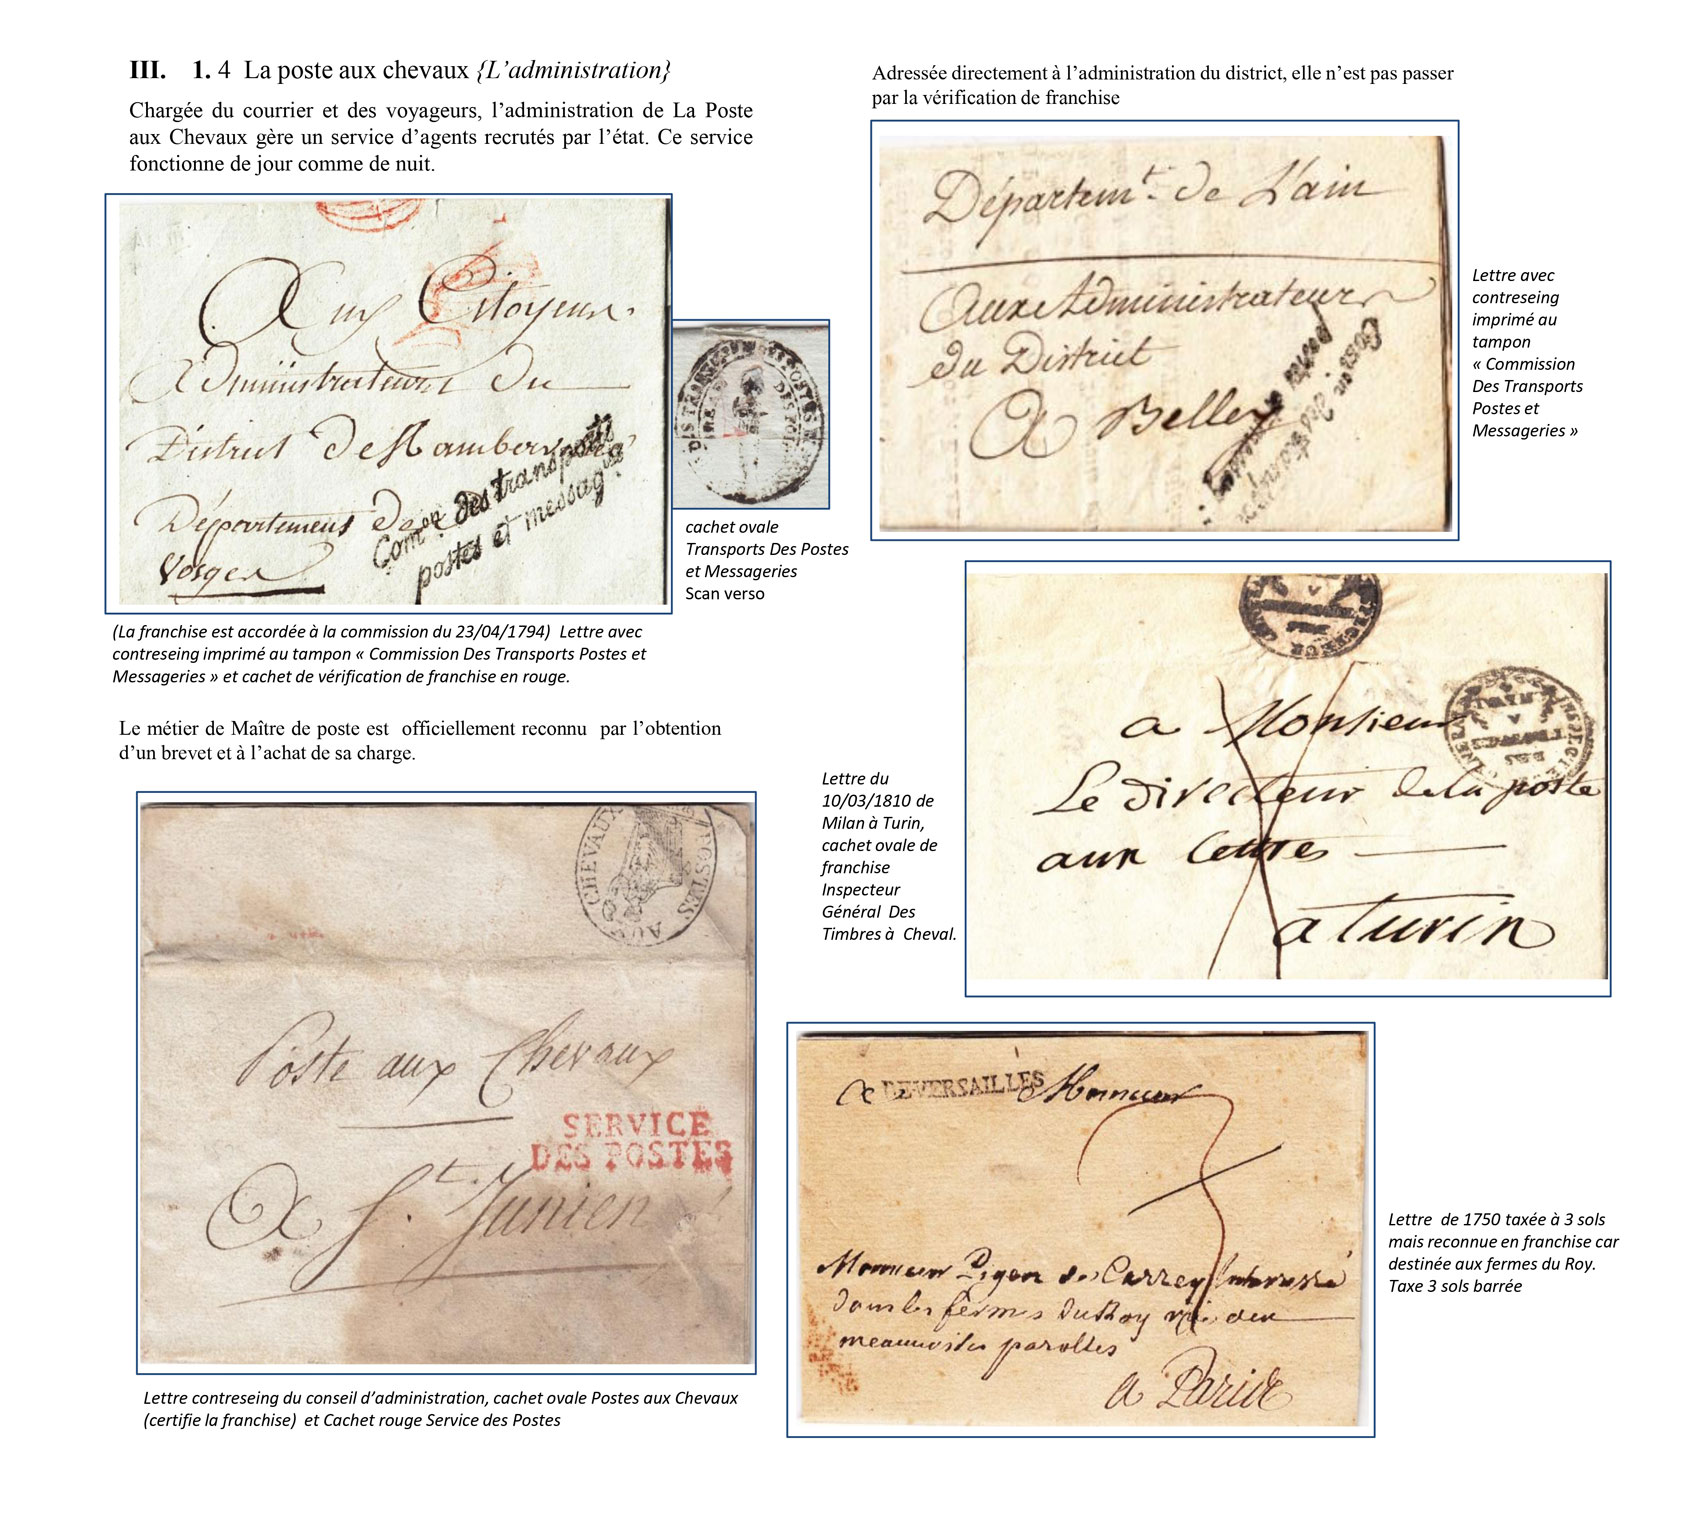 III. 1. 4 La poste aux chevaux {L’administration}
Chargée du courrier et des voyageurs, l’administration de La Poste
aux Chevaux gère un service d’agents recrutés par l’état. Ce service
fonctionne de jour comme de nuit.
Aux Citoyens
Administrateurs du
District de
Département des
Vosges
Comon. des transports
postes et messagies.
cachet ovale
Transports Des Postes
et Messageries
Scan verso
(La franchise est accordée à la commission du 23/04/1794) Lettre avec
contreseing imprimé au tampon « Commission Des Transports Postes et
Messageries » et cachet de vérification de franchise en rouge.
Le métier de Maître de poste est officiellement reconnu par l’obtention
d’un brevet et à l’achat de sa charge.
AUX CHEVAUX POSTES
Poste aux Chevaux
SERVICE
DES POSTES
A St. Junien
Lettre contreseing du conseil d’administration, cachet ovale Postes aux Chevaux
(certifie la franchise) et Cachet rouge Service des Postes
Adressée directement à l’administration du district, elle n’est pas passer
par la vérification de franchise
Départemt. de L'ain
Aux Administrateurs
du District
A Belley
Lettre avec
contreseing
imprimé au
tampon
« Commission
Des Transports
Postes et
Messageries »
a Monsieur
Le directeur de la poste
aux Lettres
a turin
Lettre du
10/03/1810 de
Milan à Turin,
cachet ovale de
franchise
Inspecteur
Général Des
Timbres à Cheval.
A DE VERSAILLES Monsieur
3
Monsieur de
dans les fermes du Roy rüe des
parolles
a Paris
Lettre de 1750 taxée à 3 sols
mais reconnue en franchise car
destinée aux fermes du Roy.
Taxe 3 sols barrée